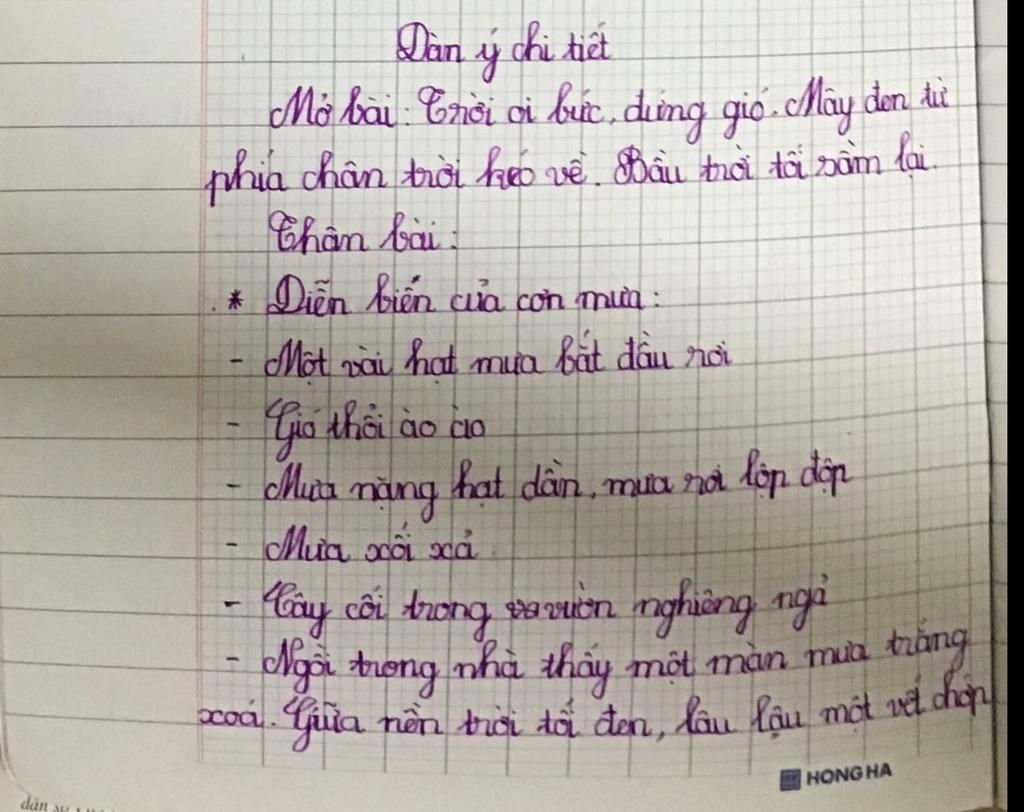 Dàn ý chi tiết
Mở bài: Trời oi bức, dứng gió. Mây đen từ
phía chân trời kéo về. Bầu trời tối sầm lại.
Thân bài:
* Diễn biến của cơn mưa:
- Một vài hạt mưa bắt đầu rơi
- Gió thổi ào ào
- Mưa nặng hạt dần, mưa rơi lộp độp
- Mưa xối xả
- Cây cối trong vườn nghiêng ngả
- Ngồi trong nhà thấy một màn mưa trắng
xoá. Giữa nền trời tối đen, lâu lâu một vệt chớp
HONG HA